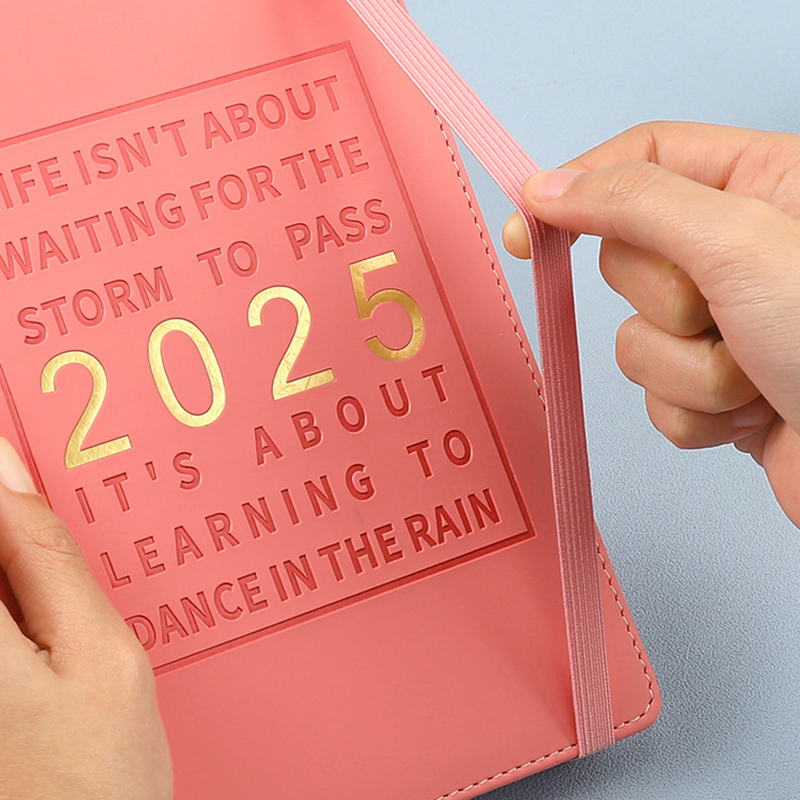 LIFE ISN'T ABOUT
WAITING FOR THE
STORM TO PASS
2025
IT'S ABOUT
LEARNING TO
DANCE IN THE RAIN